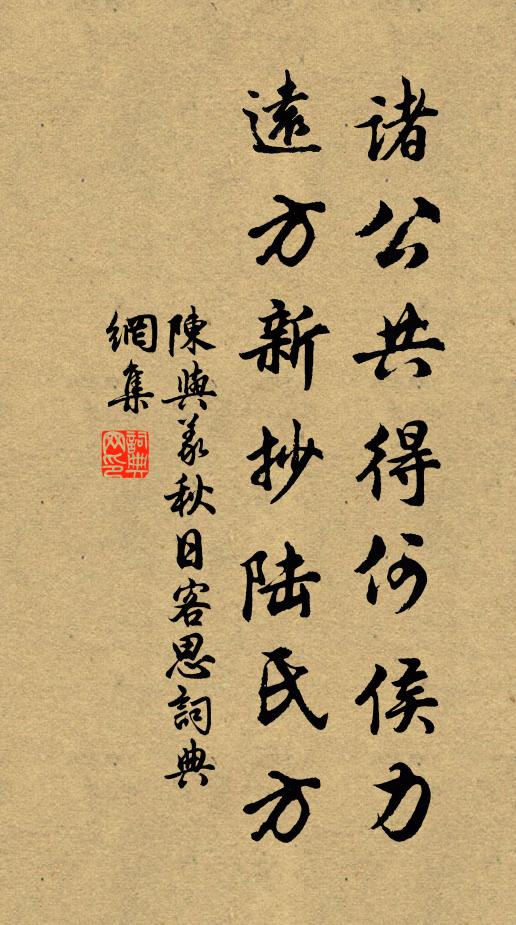 諸公共得何侯力
遠方新抄陆氏方
陳與義秋日客思詞典
網集
詞典
网印